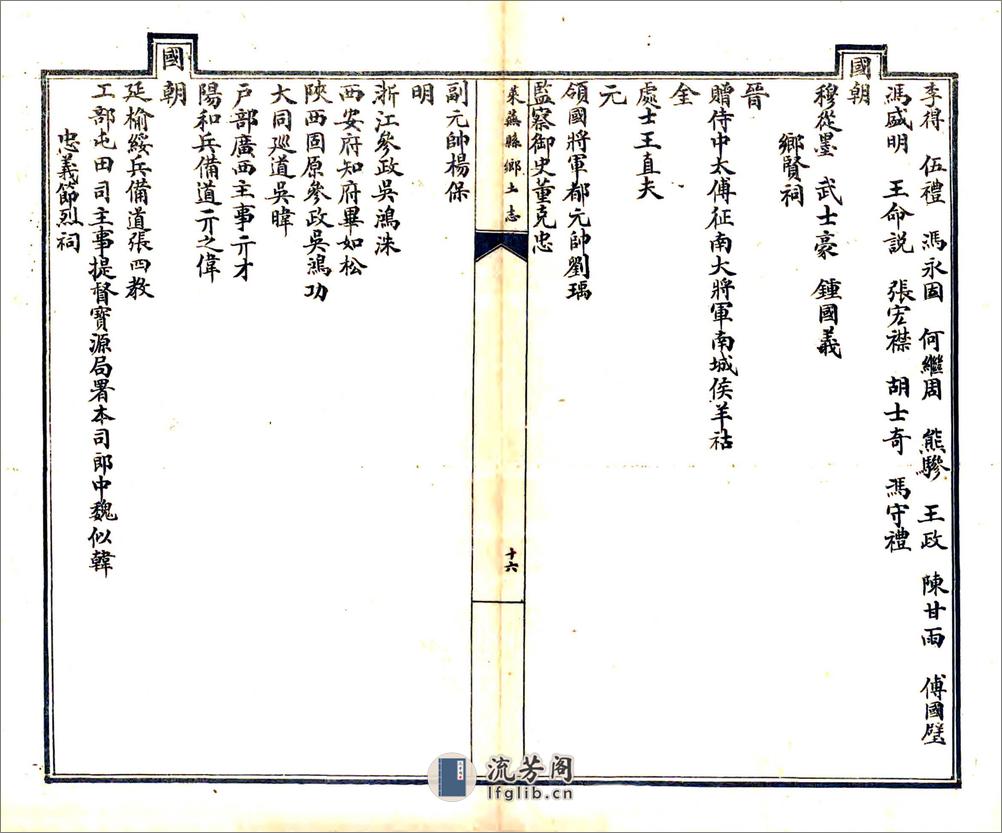 李得　伍禮　馮永固　何繼周　熊驂　王政　陳甘雨　傅國璧
馮盛明　王命説　張宏襟　胡士奇　馮守禮
國朝
穆從墨　武士豪　鍾國義
鄉賢祠
晉
贈侍中太傅征南大將軍南城侯羊祜
金
處士王直夫
元
領國將軍都元帥劉瑀
監察御史董克忠
萊蕪縣鄉土志
十六
副元帥楊保
明
浙江參政吳鴻洙
西安府知府畢如松
陝西固原參政吳鴻功
大同廵道吳暐
戸部廣西主事亓才
陽和兵備道亓之偉
國朝
延榆綏兵備道張四教
工部屯田司主事提督寳源局署本司郎中魏似韓
忠義節烈祠
流芳阁
lfglib.cn